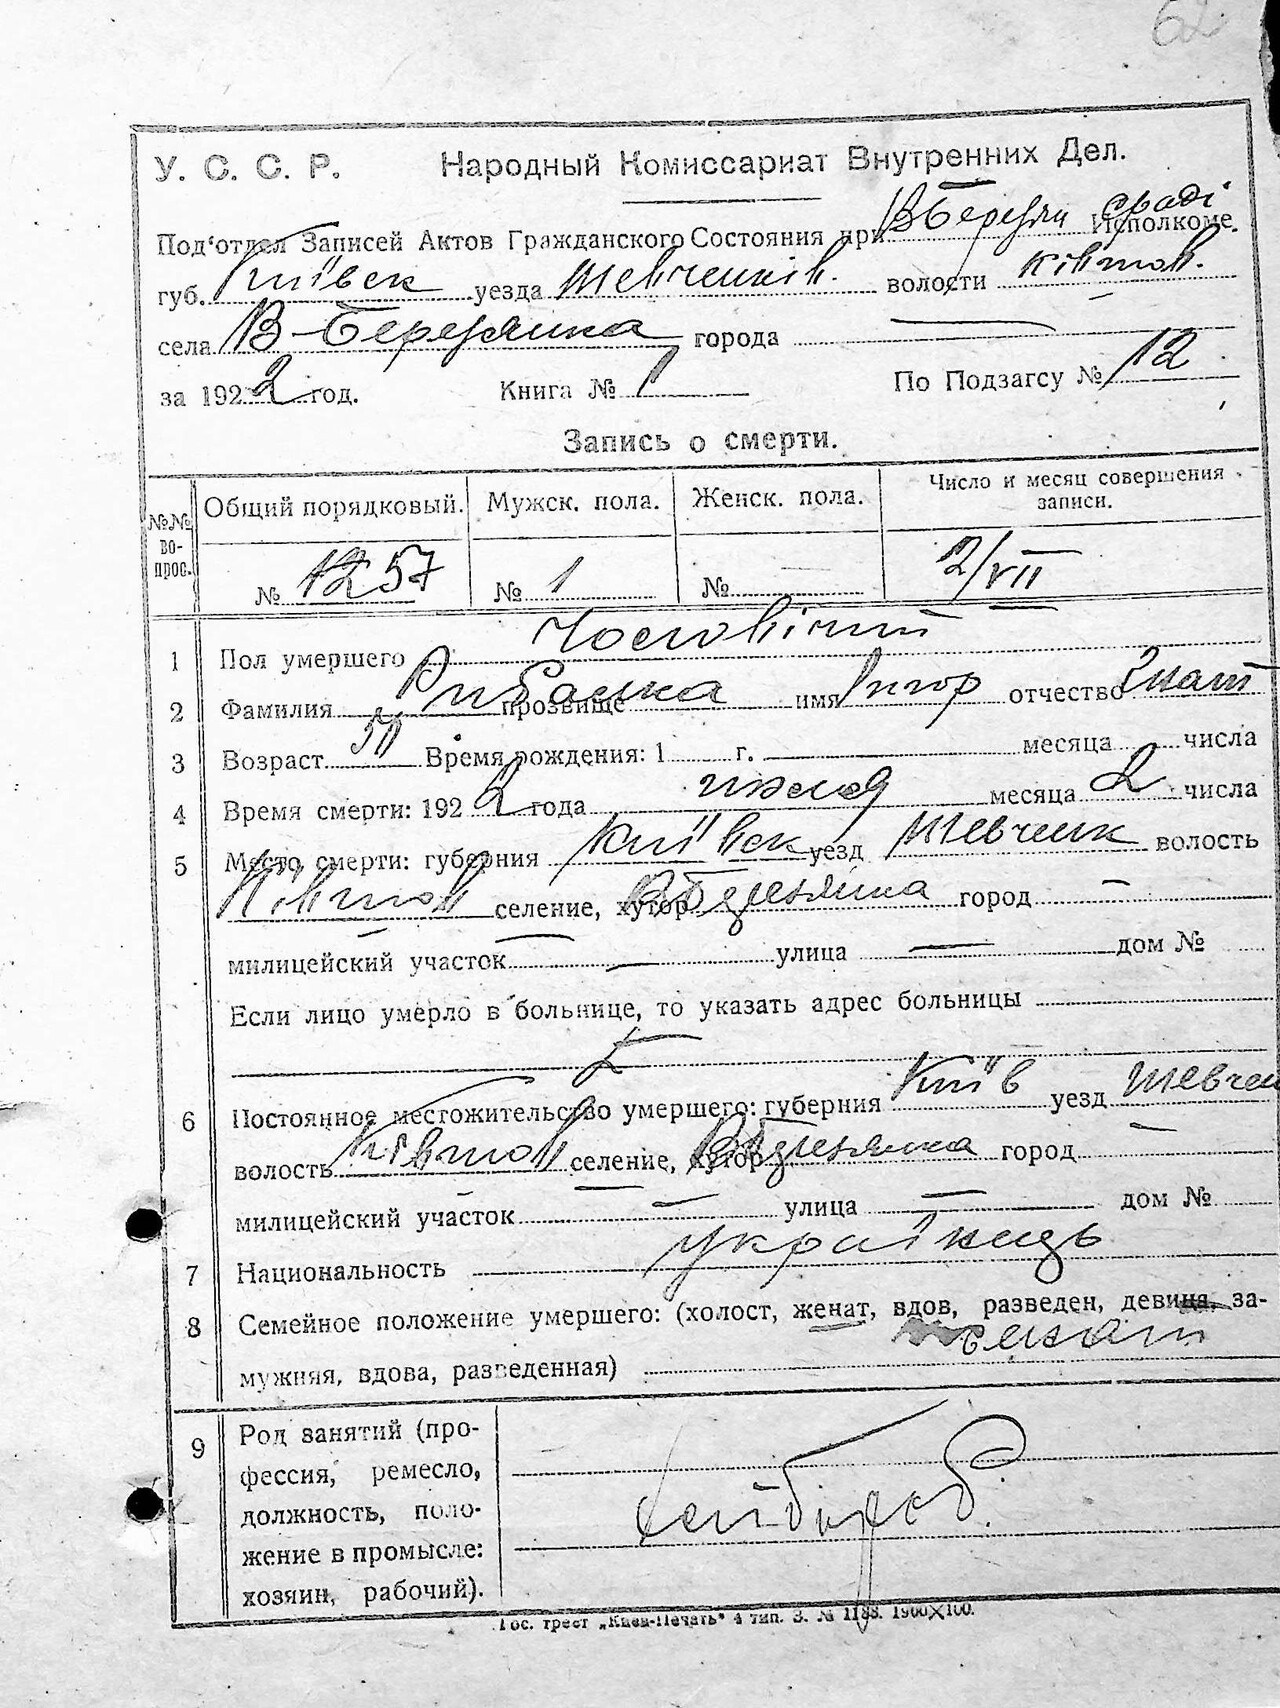 62
У. С. С. Р. Народный Комиссариат Внутренних Дел.
Под'отдел Записей Актов Гражданского Состояния при В Березян сраді Исполкоме.
губ. Київск уезда Шевченків. волости Ківшов.
села В-Березянка города —
за 1922 год. Книга № 1 По Подзагсу № 12
Запись о смерти.
№№ вопрос. Общий порядковый. Мужск. пола. Женск. пола. Число и месяц совершения записи.
№ 12 57 № 1 № — 2/VII
1 Пол умершего Чоловічий
2 Фамилия Рибалка прозвище имя отчество Гнат
3 Возраст 50 Время рождения: 1 г. месяца числа
4 Время смерти: 1922 года июля месяца 2 числа
5 Место смерти: губерния Київск уезд Шевченк волость
Ківшов селение, хутор ВБерезянка город —
милицейский участок — улица — дом №
Если лицо умерло в больнице, то указать адрес больницы
6 Постоянное местожительство умершего: губерния Київ уезд Шевчен
волость Ківшов селение, хутор ВБерезянка город —
милицейский участок — улица — дом №
7 Национальность українець
8 Семейное положение умершего: (холост, женат, вдов, разведен, девица, за-
мужняя, вдова, разведенная) женат
9 Род занятий (про-
фессия, ремесло,
должность, поло-
жение в промысле:
хозяин, рабочий). хлібороб.
Гос. трест „Киев-Печать“ 4 тип. З. № 1188. 1900×100.